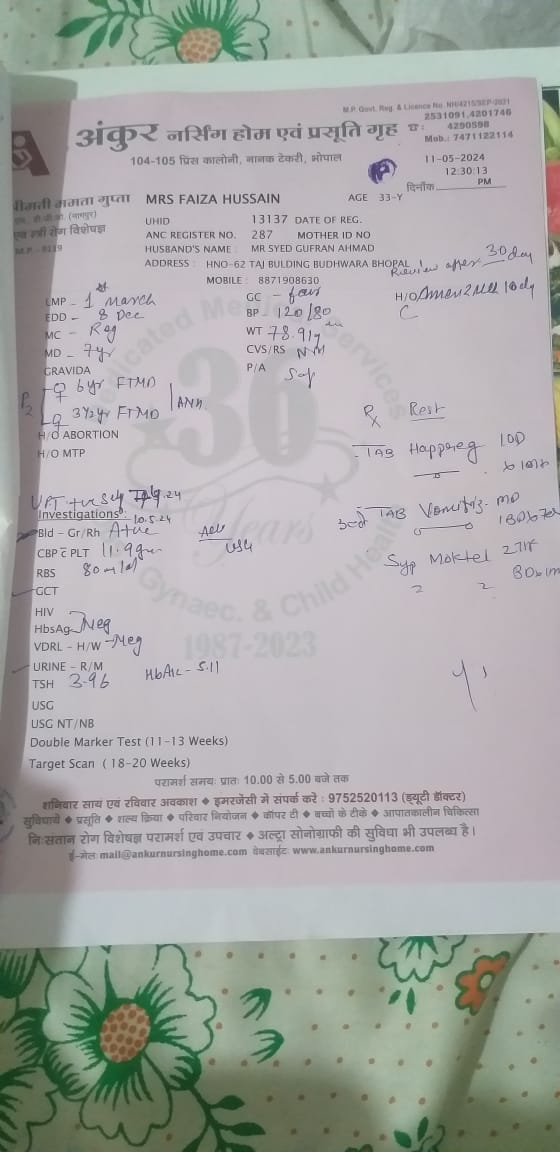 M.P. Govt. Reg. & Licence No. NH/4215/SEP-2021
2531091,4201746
4290598
Mob.: 7471122114
अंकुर नर्सिंग होम एवं प्रसूति गृह
104-105 प्रिंस कालोनी, नानक टेकरी, भोपाल
11-05-2024
12:30:13
PM
दिनाँक
श्रीमती ममता गुप्ता
एवं स्त्री रोग विशेषज्ञ
MRS FAIZA HUSSAIN AGE 33-Y
UHID 13137 DATE OF REG.
ANC REGISTER NO. 287 MOTHER ID NO
HUSBAND'S NAME : MR SYED GUFRAN AHMAD
ADDRESS : HNO-62 TAJ BULDING BUDHWARA BHOPAL
MOBILE : 8871908630
Review after 30 day
LMP - 1 March
GC - fair
H/O
EDD - 8 Dec
BP - 120/80
MC - Reg
WT 78.9
MD - 7yr
CVS/RS
GRAVIDA
P/A Soft
P2
6yr FTND
3 1/2yr FTND
H/O ABORTION
H/O MTP
Rx Rest
TAB Happreg 1OD
TAB Vomitiz- MD
Syp
UPT
Investigations :
10.5.24
Bld - Gr/Rh A+ve
Adv USG
CBP c PLT 11.9gm
RBS 80
GCT
HIV
HbsAg Neg
VDRL - H/W Neg
URINE - R/M
TSH 3.96
HbA1c - 5.11
USG
USG NT/NB
Double Marker Test (11-13 Weeks)
Target Scan ( 18-20 Weeks)
Dedicated Medical Services
36 Years
Gynaec. & Child Health
1987-2023
परामर्श समयः प्रातः 10.00 से 5.00 बजे तक
शनिवार सायं एवं रविवार अवकाश ◆ इमरजेंसी में संपर्क करे : 9752520113 (ड्यूटी डॉक्टर)
सुविधायें ◆ प्रसूति ◆ शल्य क्रिया ◆ परिवार नियोजन ◆ कॉपर टी ◆ बच्चों के टीके ◆ आपातकालीन चिकित्सा
निःसंतान रोग विशेषज्ञ परामर्श एवं उपचार ◆ अल्ट्रा सोनोग्राफी की सुविधा भी उपलब्ध है।
ई-मेलः mail@ankurnursinghome.com वेबसाईटः www.ankurnursinghome.com